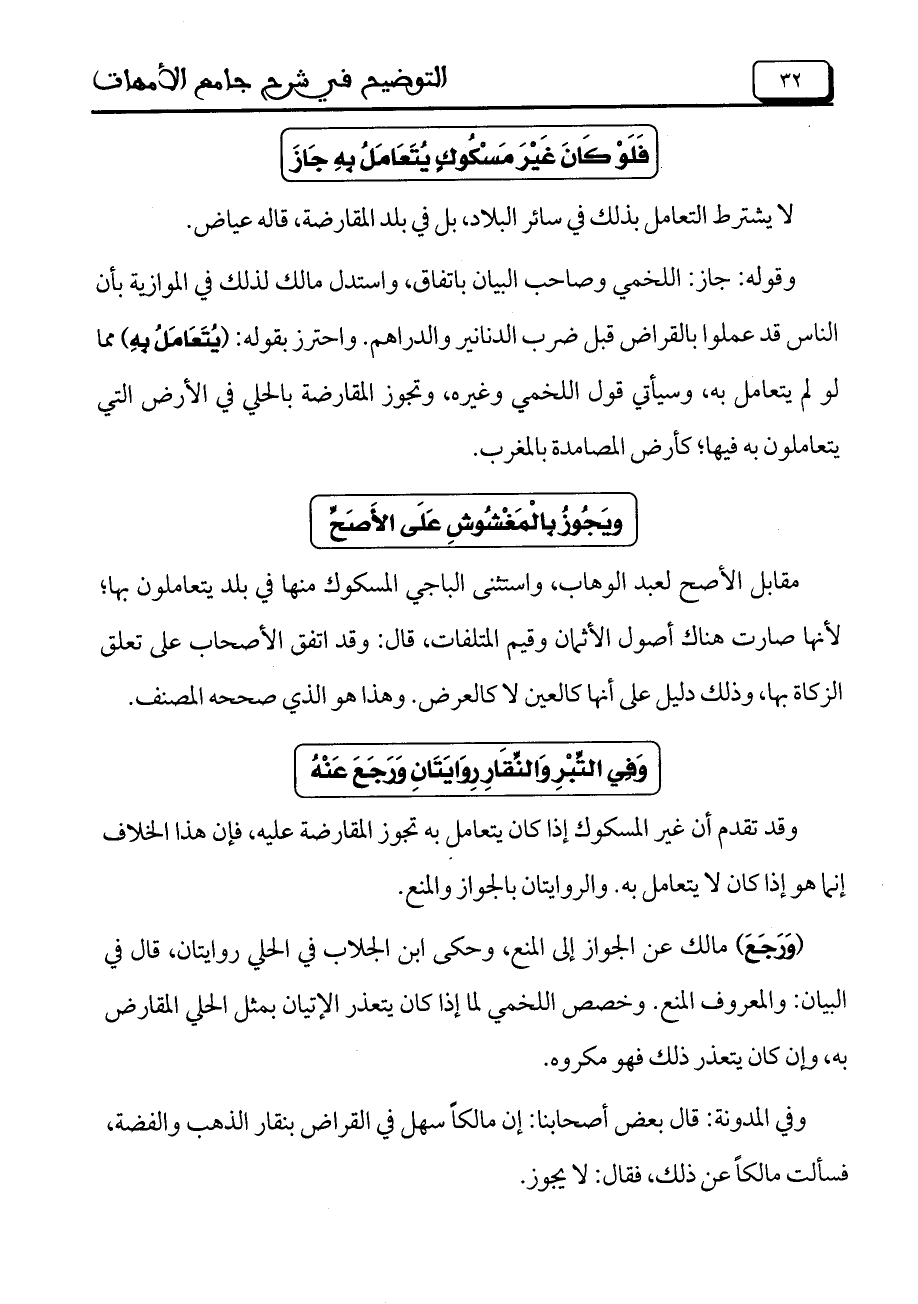 ٣٢
التوضيح في شرح جامع الأمهات
فَلَوْ كَانَ غَيْرَ مَسْكُوكٍ يُتَعَامَلُ بِهِ جَازَ
لا يشترط التعامل بذلك في سائر البلاد، بل في بلد المقارضة، قاله عياض.
وقوله: جاز: اللخمي وصاحب البيان باتفاق، واستدل مالك لذلك في الموازية بأن
الناس قد عملوا بالقراض قبل ضرب الدنانير والدراهم. واحترز بقوله: (يُتَعَامَلُ بِهِ) مما
لو لم يتعامل به، وسيأتي قول اللخمي وغيره، وتجوز المقارضة بالحلي في الأرض التي
يتعاملون به فيها؛ كأرض المصامدة بالمغرب.
ويَجُوزُ بِالْمَغْشُوشِ عَلَى الأَصَحِّ
مقابل الأصح لعبد الوهاب، واستثنى الباجي المسكوك منها في بلد يتعاملون بها؛
لأنها صارت هناك أصول الأثمان وقيم المتلفات، قال: وقد اتفق الأصحاب على تعلق
الزكاة بها، وذلك دليل على أنها كالعين لا كالعرض. وهذا هو الذي صححه المصنف.
وَفِي التِّبْرِ وَالنِّقَارِ رِوَايَتَانِ وَرَجَعَ عَنْهُ
وقد تقدم أن غير المسكوك إذا كان يتعامل به تجوز المقارضة عليه، فإن هذا الخلاف
إنما هو إذا كان لا يتعامل به. والروايتان بالجواز والمنع.
(وَرَجَعَ) مالك عن الجواز إلى المنع، وحكى ابن الجلاب في الحلي روايتان، قال في
البيان: والمعروف المنع. وخصص اللخمي لما إذا كان يتعذر الإتيان بمثل الحلي المقارض
به، وإن كان يتعذر ذلك فهو مكروه.
وفي المدونة: قال بعض أصحابنا: إن مالكاً سهل في القراض بنقار الذهب والفضة،
فسألت مالكاً عن ذلك، فقال: لا يجوز.